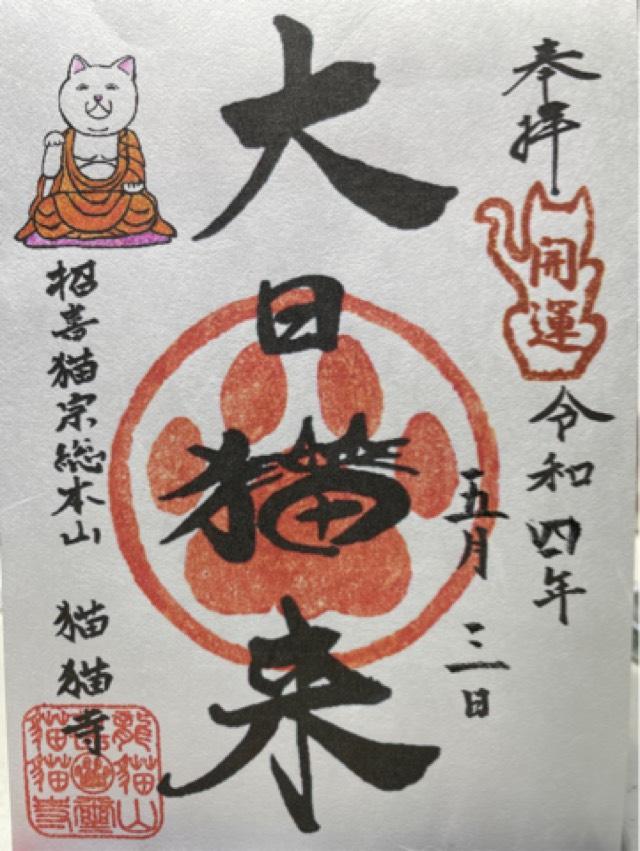 奉拝
開運
令和四年
五月 三日
大日猫来
招喜猫宗総本山 猫猫寺
龍猫山
猫猫寺